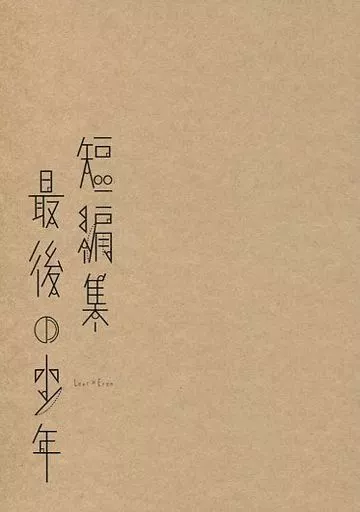 短編集
最後の少年
Levi×Eren